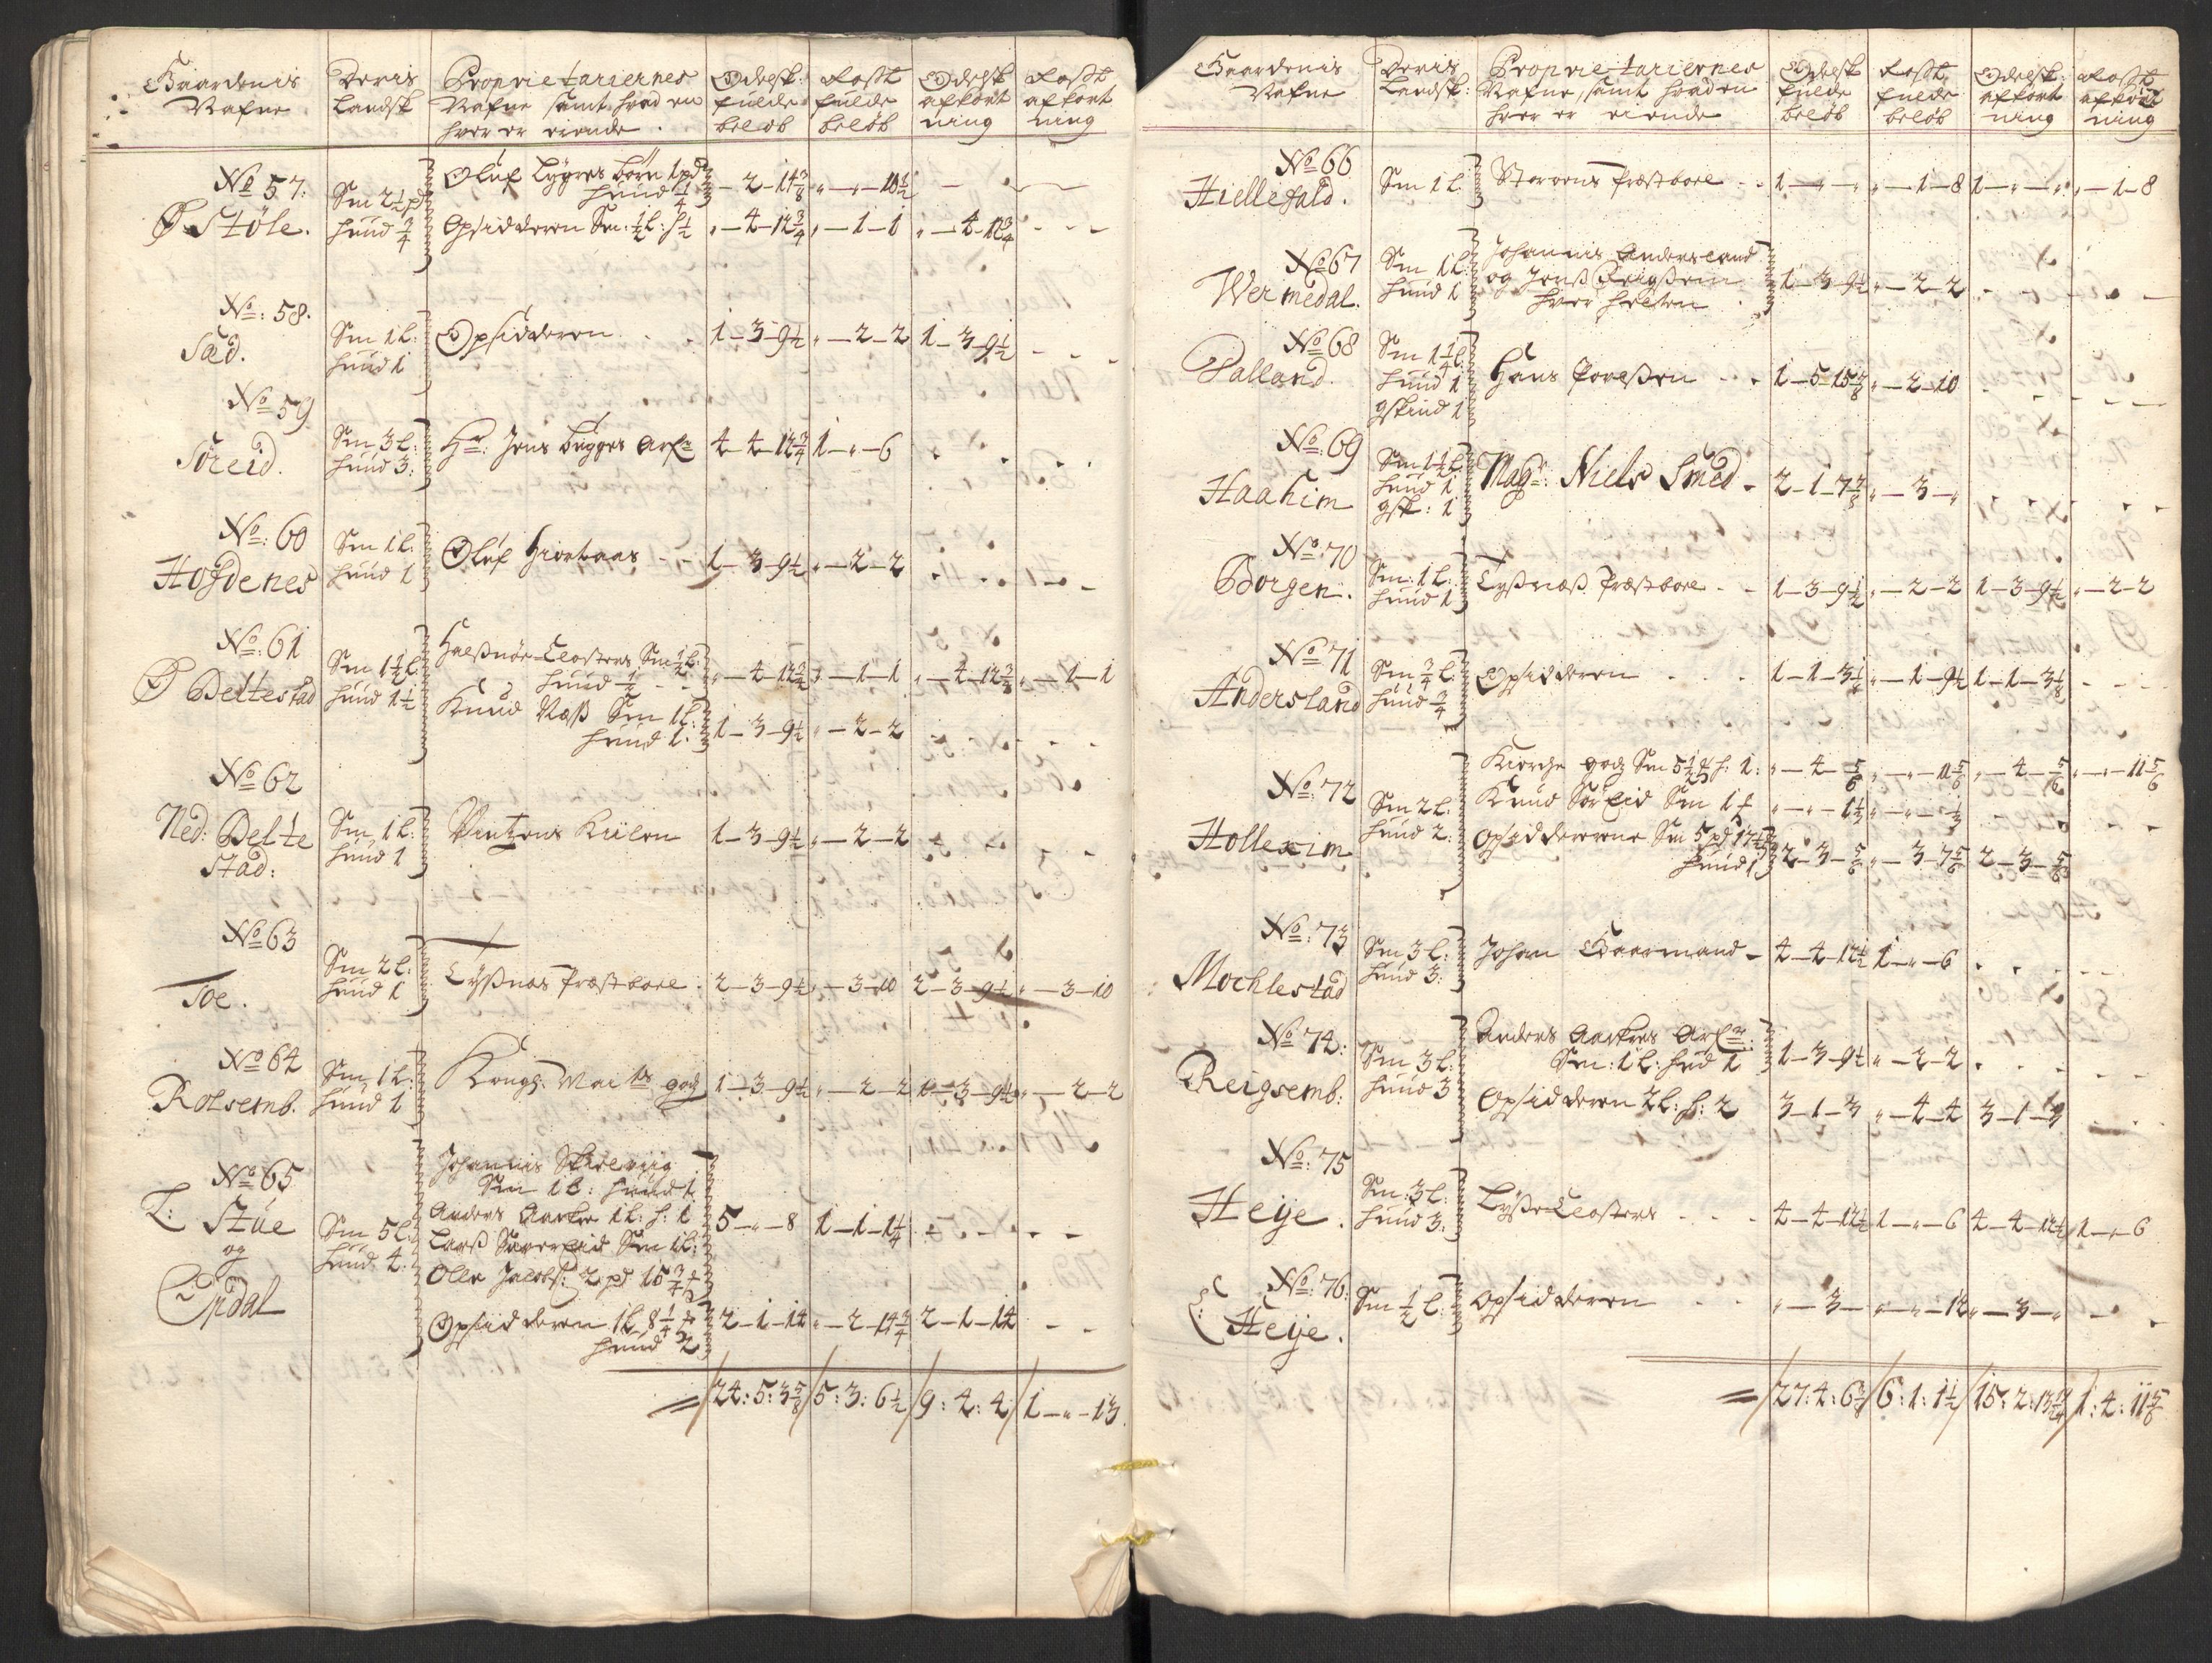 Gaardenis Nafne
Deris Landsk
Proprietariernes Nafne samt hvad en hver er eiende.
Odelsk: fulde beløb
fulde beløb
Odelsk afkort ning
afkort ning
No 57:
Ø Støle.
Sm 2½ pd
hund ¾
Oluf Lygres børn 1 pd
hund ¼
- 2 - 14⅜
Opsidderen Sm: ½ L: h ½
" - 4 - 12¾ " - 1 - 1 " - 4 - 12¾ - - -
No: 58.
Sæd.
Sm 1 L:
hund 1
Opsidderen . . 1 - 3 - 9½ " - 2 - 2 1 - 3 - 9½ - - -
No 59
Søreid.
Sm 3 L:
hund 3:
Hr: Jens Bugges Arf: 4 - 4 - 12¾ 1 - " - 6
No: 60
Hofdenes
Sm 1 L:
hund 1
Oluf Hiortaas - - 1 - 3 - 9½ " - 2 - 2
No: 61
Ø Beltestad
Sm 1½ L
hund 1½
Halsnøe Closters Sm ½ L:
hund ½ - - " - 4 - 12¾ " - 1 - 1 " - 4 - 12¾ " - 1 - 1
Knud Næss Sm 1 L:
hund 1: 1 - 3 - 9½ " - 2 - 2
No 62
Ned: Belte
stad:
Sm 1 L:
hund 1
Vintzens Kiilen 1 - 3 - 9½ " - 2 - 2
No 63
Toe.
Sm 2 L:
hund 1
Tyssnæs Præstbole: 2 - 3 - 9½ " - 3 - 10 2 - 3 - 9½ " - 3 - 10
No 64
Rolsemb.
Sm 1 L:
hund 1
Kongl: Mai ts godz 1 - 3 - 9½ " - 2 - 2 1 - 3 - 9½ " - 2 - 2
No 65
L: Stue
og
Opdal
Sm 5 L:
hund 4:
Johannis
Sm 1 L: hund 1
Anders Aarke 1 L: h: 1
Larss Sm 1 L:
Olle Jacobs: 2 pd 15¾
5 - " - 8 1 - 1 - 1¼
Opsidderen 1 L 8¼
hund 2
2 - 1 - 14 " - 2 - 14¾ 2 - 1 - 14 - -
= / 24: 5: 3⅝ / 5: 3: 6½ / 9: 4: 4 / 1 - " - 13.
Gaardenis Nafne
Deris Landsk:
Proprietariernes Nafne, samt hvad en hver er eiende
Odelsk fulde beløb
fulde beløb
Odelsk: afkort ning
afkort ning
No 66
Hiellefald.
Sm 1 L
Præstbole - - 1 - " - " " - 1 - 8 1 - " - " " - 1 - 8
No 67
Wermedal.
Sm 1 L:
hund 1
Johannis Andersland
og Jens
hver helten
1 - 3 - 9½ " - 2 - 2
No 68
Palland.
Sm 1¼ L:
hund 1
gskind 1
Hans Povelssen - - 1 - 5 - 15⅞ " - 2 - 10
No: 69
Haaheim
Sm 1½ L:
hund 1
gsk: 1
Magr: Niels Smed - 2 - 1 - 7⅞ " - 3 - "
No: 70
Borgen.
Sm: 1 L:
hund 1
Tyssnæss Præstbole - - 1 - 3 - 9½ " - 2 - 2 1 - 3 - 9½ " - 2 - 2
No 71
Andersland
Sm ¾ L:
hund ¾
Opsidderen . . . 1 - 1 - 3⅛ " - 1 - 9½ 1 - 1 - 3⅛
No: 72
Hollexim
Sm 2 L:
hund 2:
Kierche godz Sm 5½ h: 1: " - 4 - ⅚ " - " - 11⅚ " - 4 - ⅚ " - " - 11⅚
Knud Søreid Sm 1 " - " - 1⅓ " - " - ⅓
Opsidderene Sm 5 pd 17½
hund 1 2 - 3 - ⅚ " - 3 - 7⅚ 2 - 3 - ⅚
No: 73
Mochlestad
Sm 3 L:
hund 3:
Johan Gaarmand - 4 - 4 - 12½ 1 - " - 6
No: 74:
Reigsemb:
Sm 3 L:
hund 3
Anders Aarkes Arf:
Sm: 1 L: hud 1 1 - 3 - 9½ " - 2 - 2
Opsidderen 2 L: h: 2 3 - 1 - 3 " - 4 - 4 3 - 1 - 3
No: 75
Heije.
Sm: 3 L:
hund 3:
Lysse Closters - - - 4 - 4 - 12½ 1 - " - 6 4 - 4 - 12½ 1 - " - 6
No: 76:
L: Heije.
Sm ½ L:
Opsidderen - - " - 3 - " - " - 12 " - 3 - "
= / 27: 4: 6 / 6: 1: 1½ / 15: 2: 13 / 1: 4: 11⅚